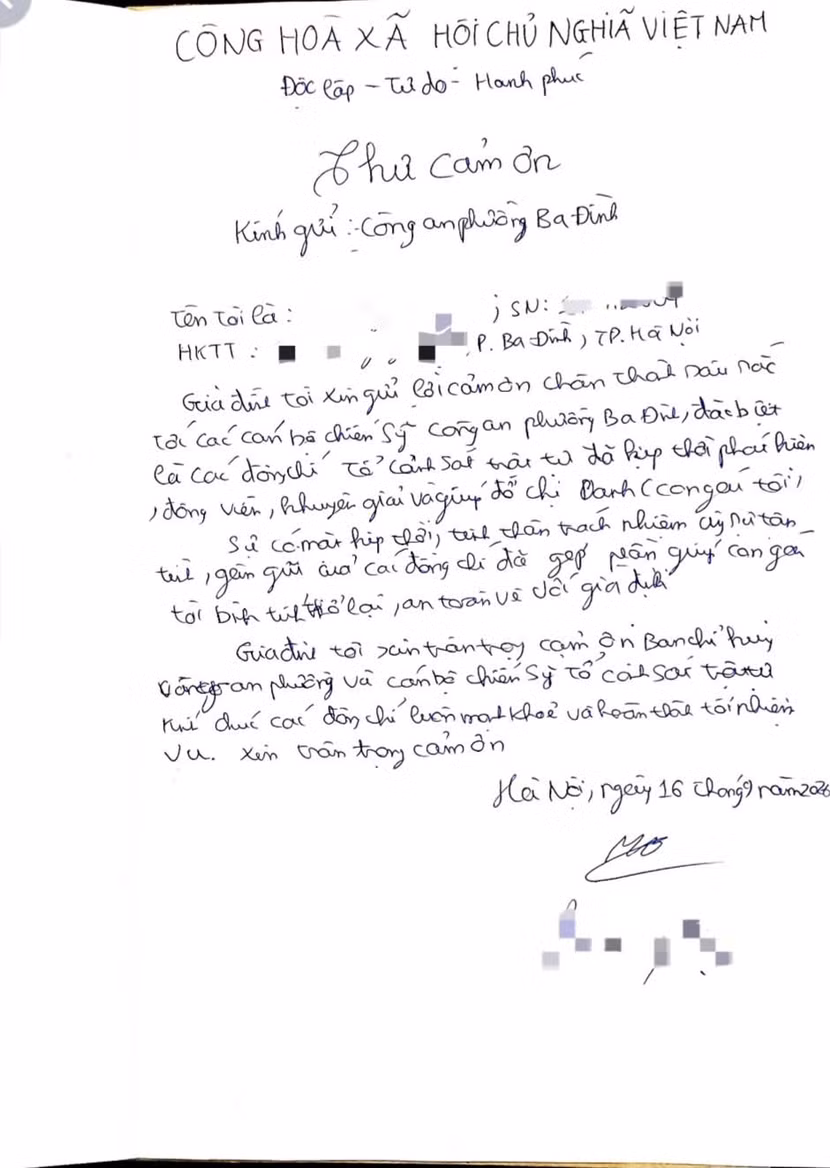 CÔNG HOÀ XÃ HÔI CHỦ NGHĨA VIỆT NAM
Độc lập - Tự do - Hanh phúc
Thư cảm ơn
Kính gửi : Công an phường Ba Đình
Tên tôi là : ; SN:
HKTT : , P. Ba Đình, TP. Hà Nội
Gia đình tôi xin gửi lời cảm ơn chân thành sâu sắc
tới các cán bộ chiến sỹ công an phường Ba Đình, đặc biệt
là các đồng chí Tổ cảnh sát trật tự đã kịp thời phát hiện
, động viên, khuyên giải và giúp đỡ chị Oanh (con gái tôi),
Sự có mặt kịp thời, tinh thần trách nhiệm sự tận
tình, gần gũi của các đồng chí đã gop phần giúp con gái
tôi bình tĩnh trở lại, an toàn về với gia đình
Gia đình tôi xin trân trọng cảm ơn Ban chỉ huy
công an phường và cán bộ chiến sỹ tổ cảnh sát trật tự
kính chúc các đồng chí luôn mạnh khoẻ và hoàn thành tốt nhiệm
vụ. Xin trân trọng cảm ơn
Hà Nội, ngày 16 tháng 9 năm